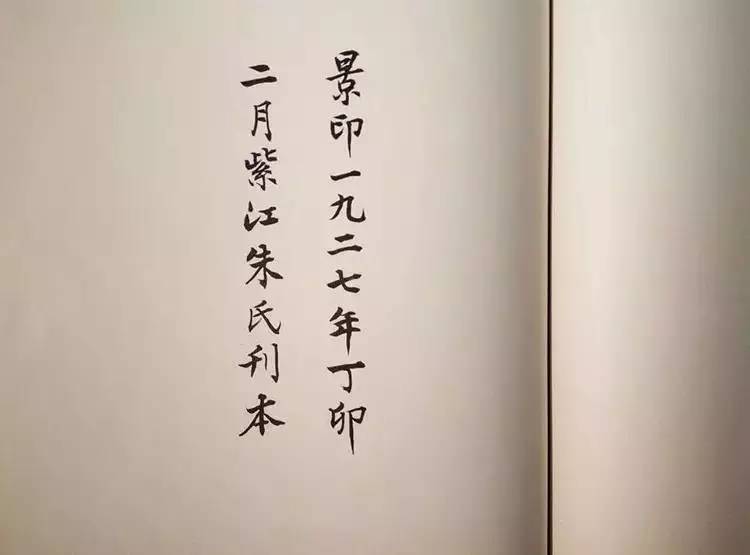 景印一九二七年丁卯
二月紫江朱氏刊本